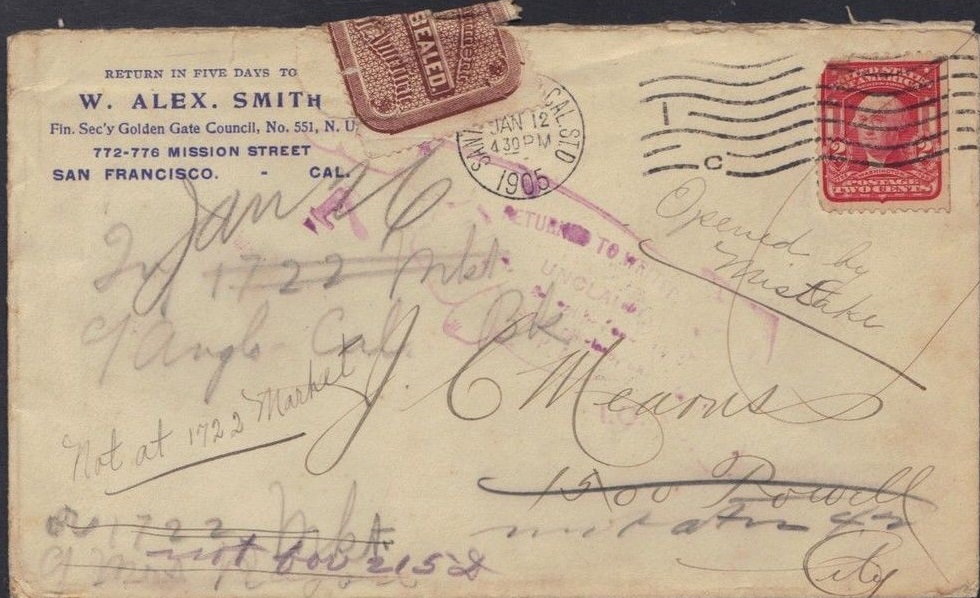 RETURN IN FIVE DAYS TO
W. ALEX. SMITH
Fin. Sec'y Golden Gate Council, No. 551, N. U
772-776 MISSION STREET
SAN FRANCISCO. - CAL.
SEALED.
SAN CAL. STD
JAN 12
430 PM
1905
I
C
UNITED STATES OF AMERICA
2 2
POSTAGE
TWO CENTS
Opened by
Mistake
Jan 16
1722 Mkt
c/o Anglo-Cal. Bk
RETURNED TO
UNCLAI
J. C. Mearns
Not at 1722 Market
1500 Powell
not at
City
1722 Mkt.
not box 215